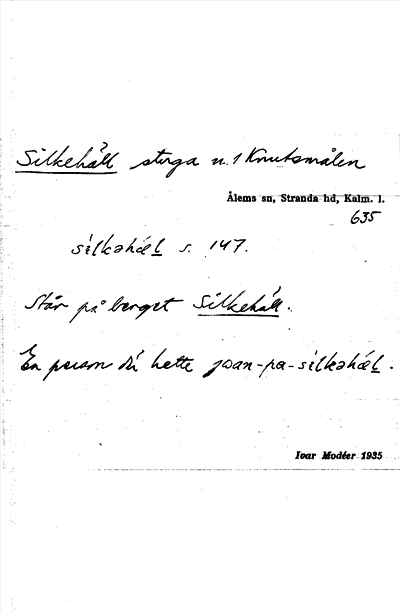 Silkehäll stuga u. 1 Knutsmålen
Ålems sn, Stranda hd, Kalm. l.
635
sílkəhæ̀l s. 147.
Står på berget Silkehäll.
En person där hette joan-pa-sílkəhæ̀l.
Ivar Modéer 1935